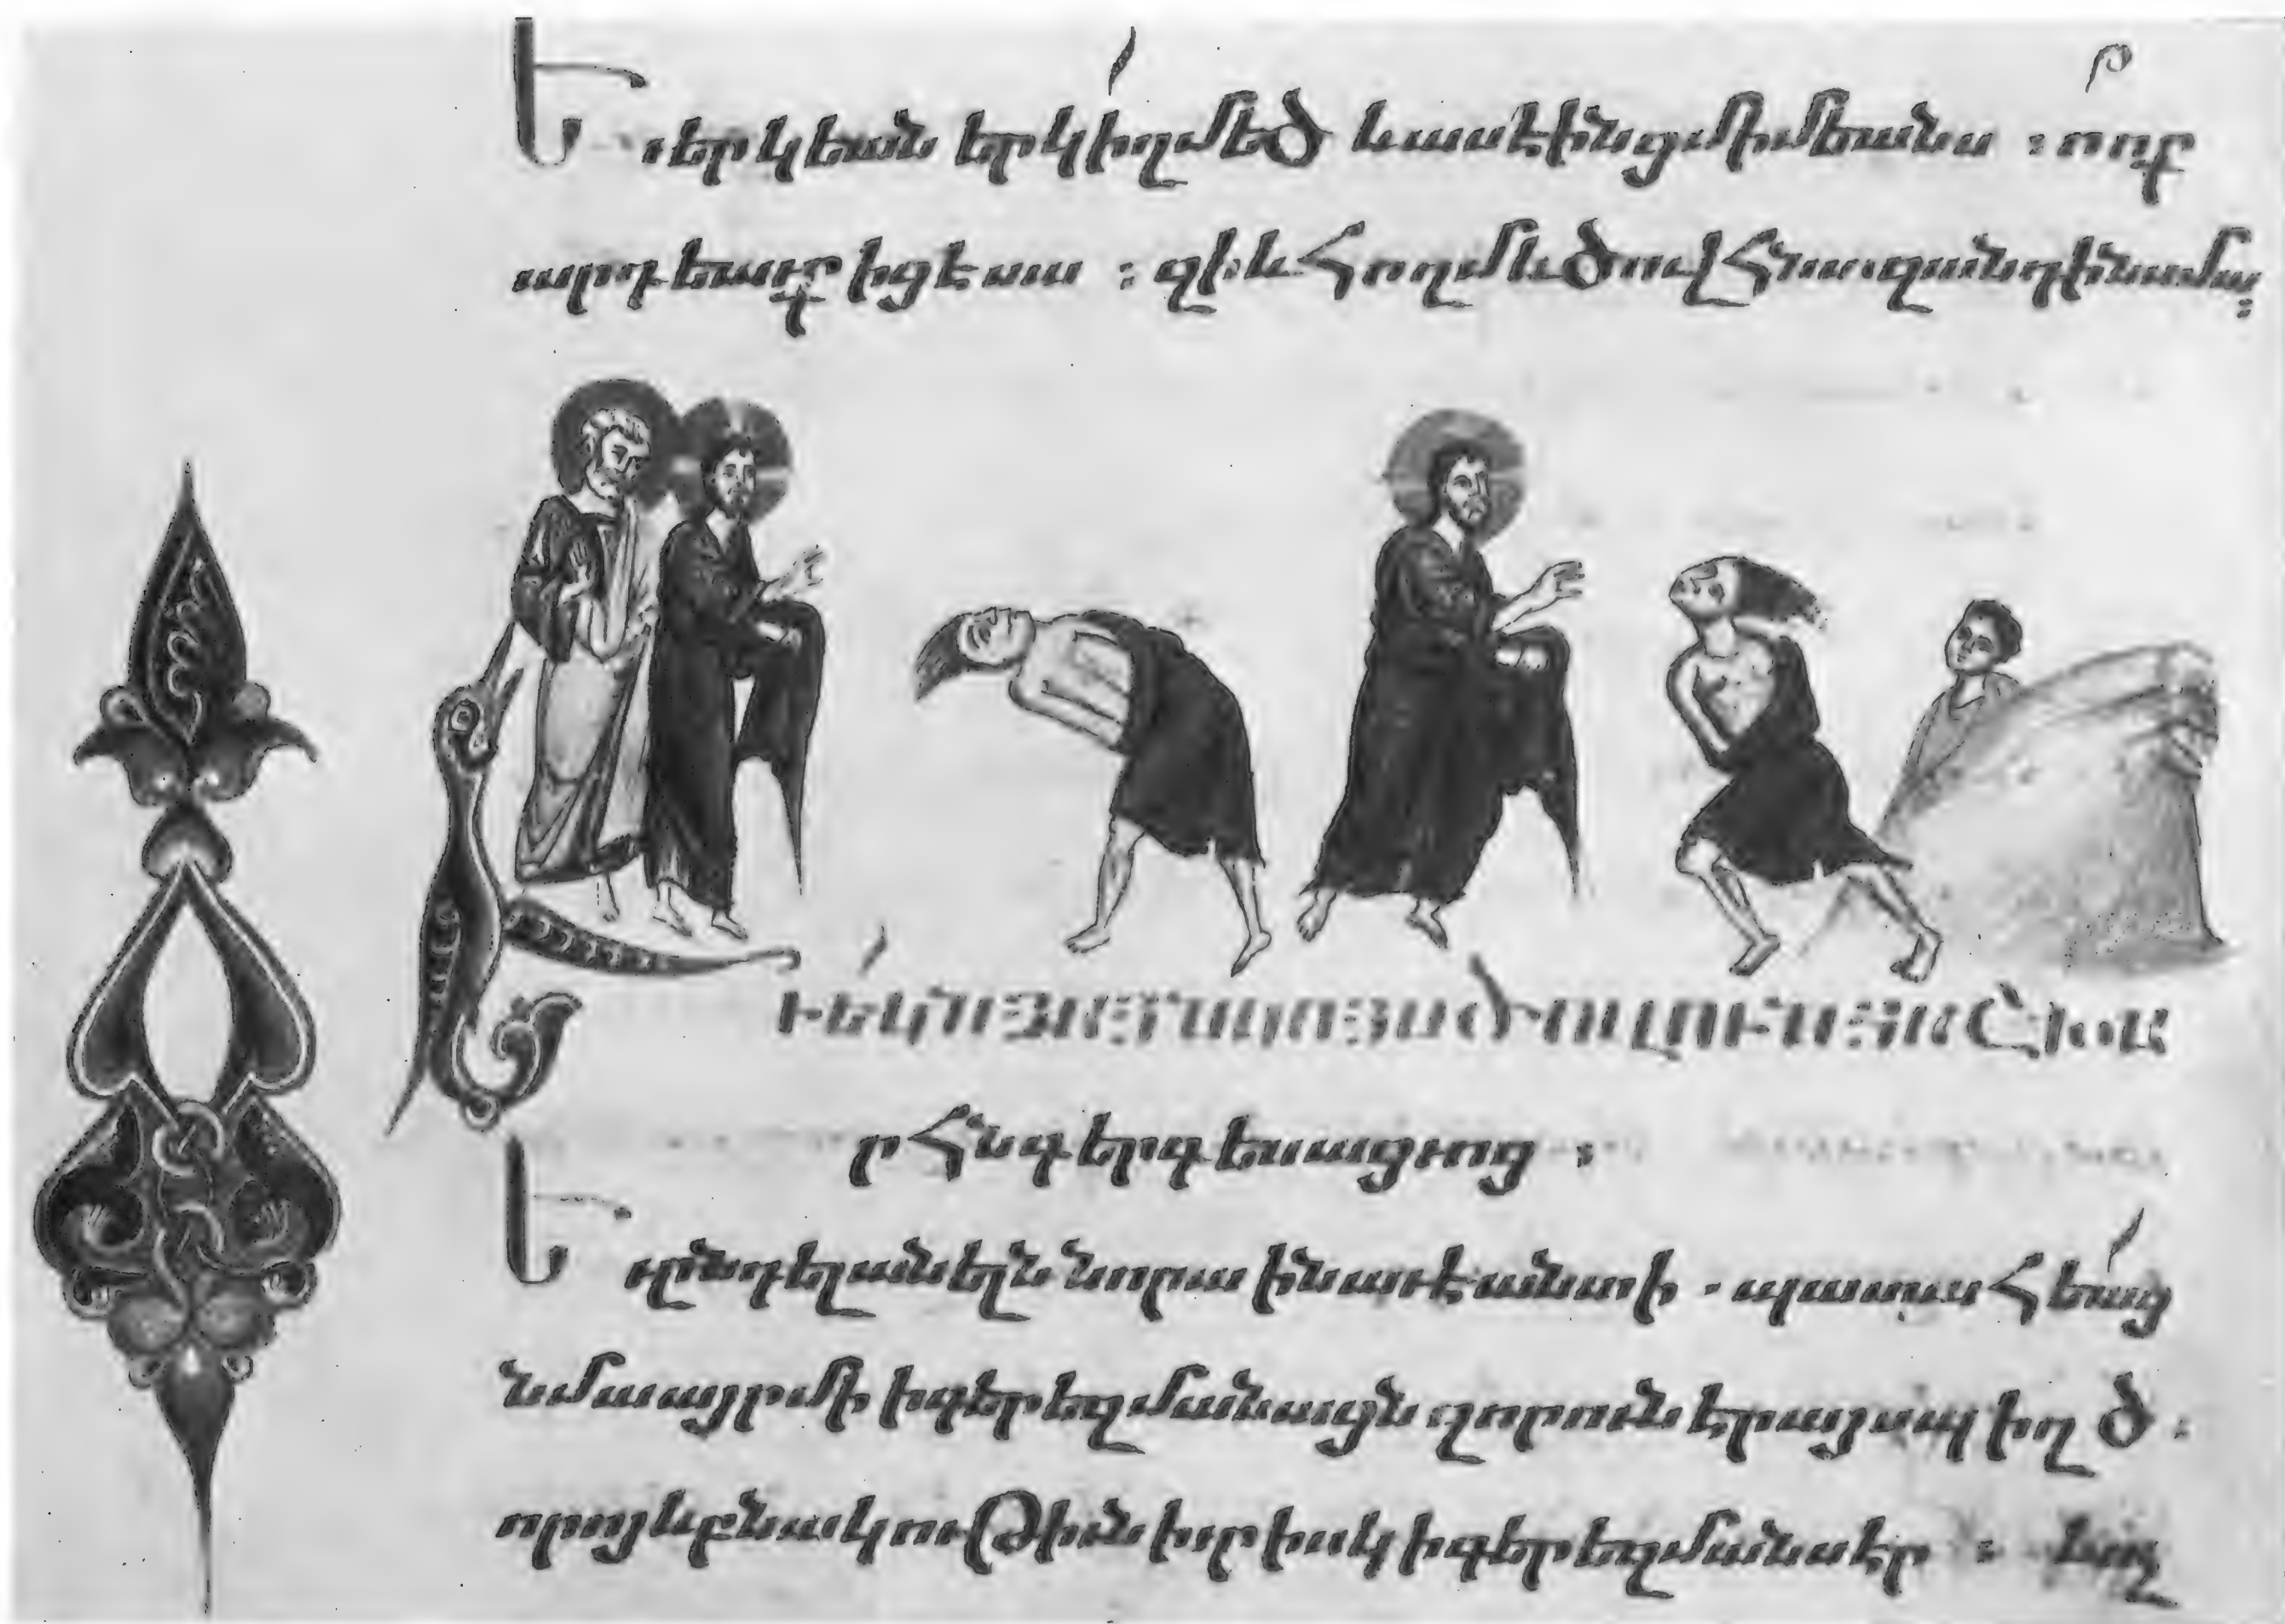 Եւ երկեան երկիւղ մեծ և ասէին ցմիմեանս : ո՞ ոք
արդեաւք իցէ սա : զի և հողմ և ծով հնազանդին նմա :
ԵՒ ԵԿՆ ՅԱՅՆԿՈՅՍ ԾՈՎՈՒՆ ՅԱՇԽԱ
րհն գերգեսացւոց :
Եւ ընդ ելանելն նորա ի նաւէ անտի . պատահեաց
նմա այր մի ի գերեզմանացն զոր ունէր այս պիղծ :
որոյ և բնակութիւն իւր իսկ ի գերեզմանս էր : և ոչ